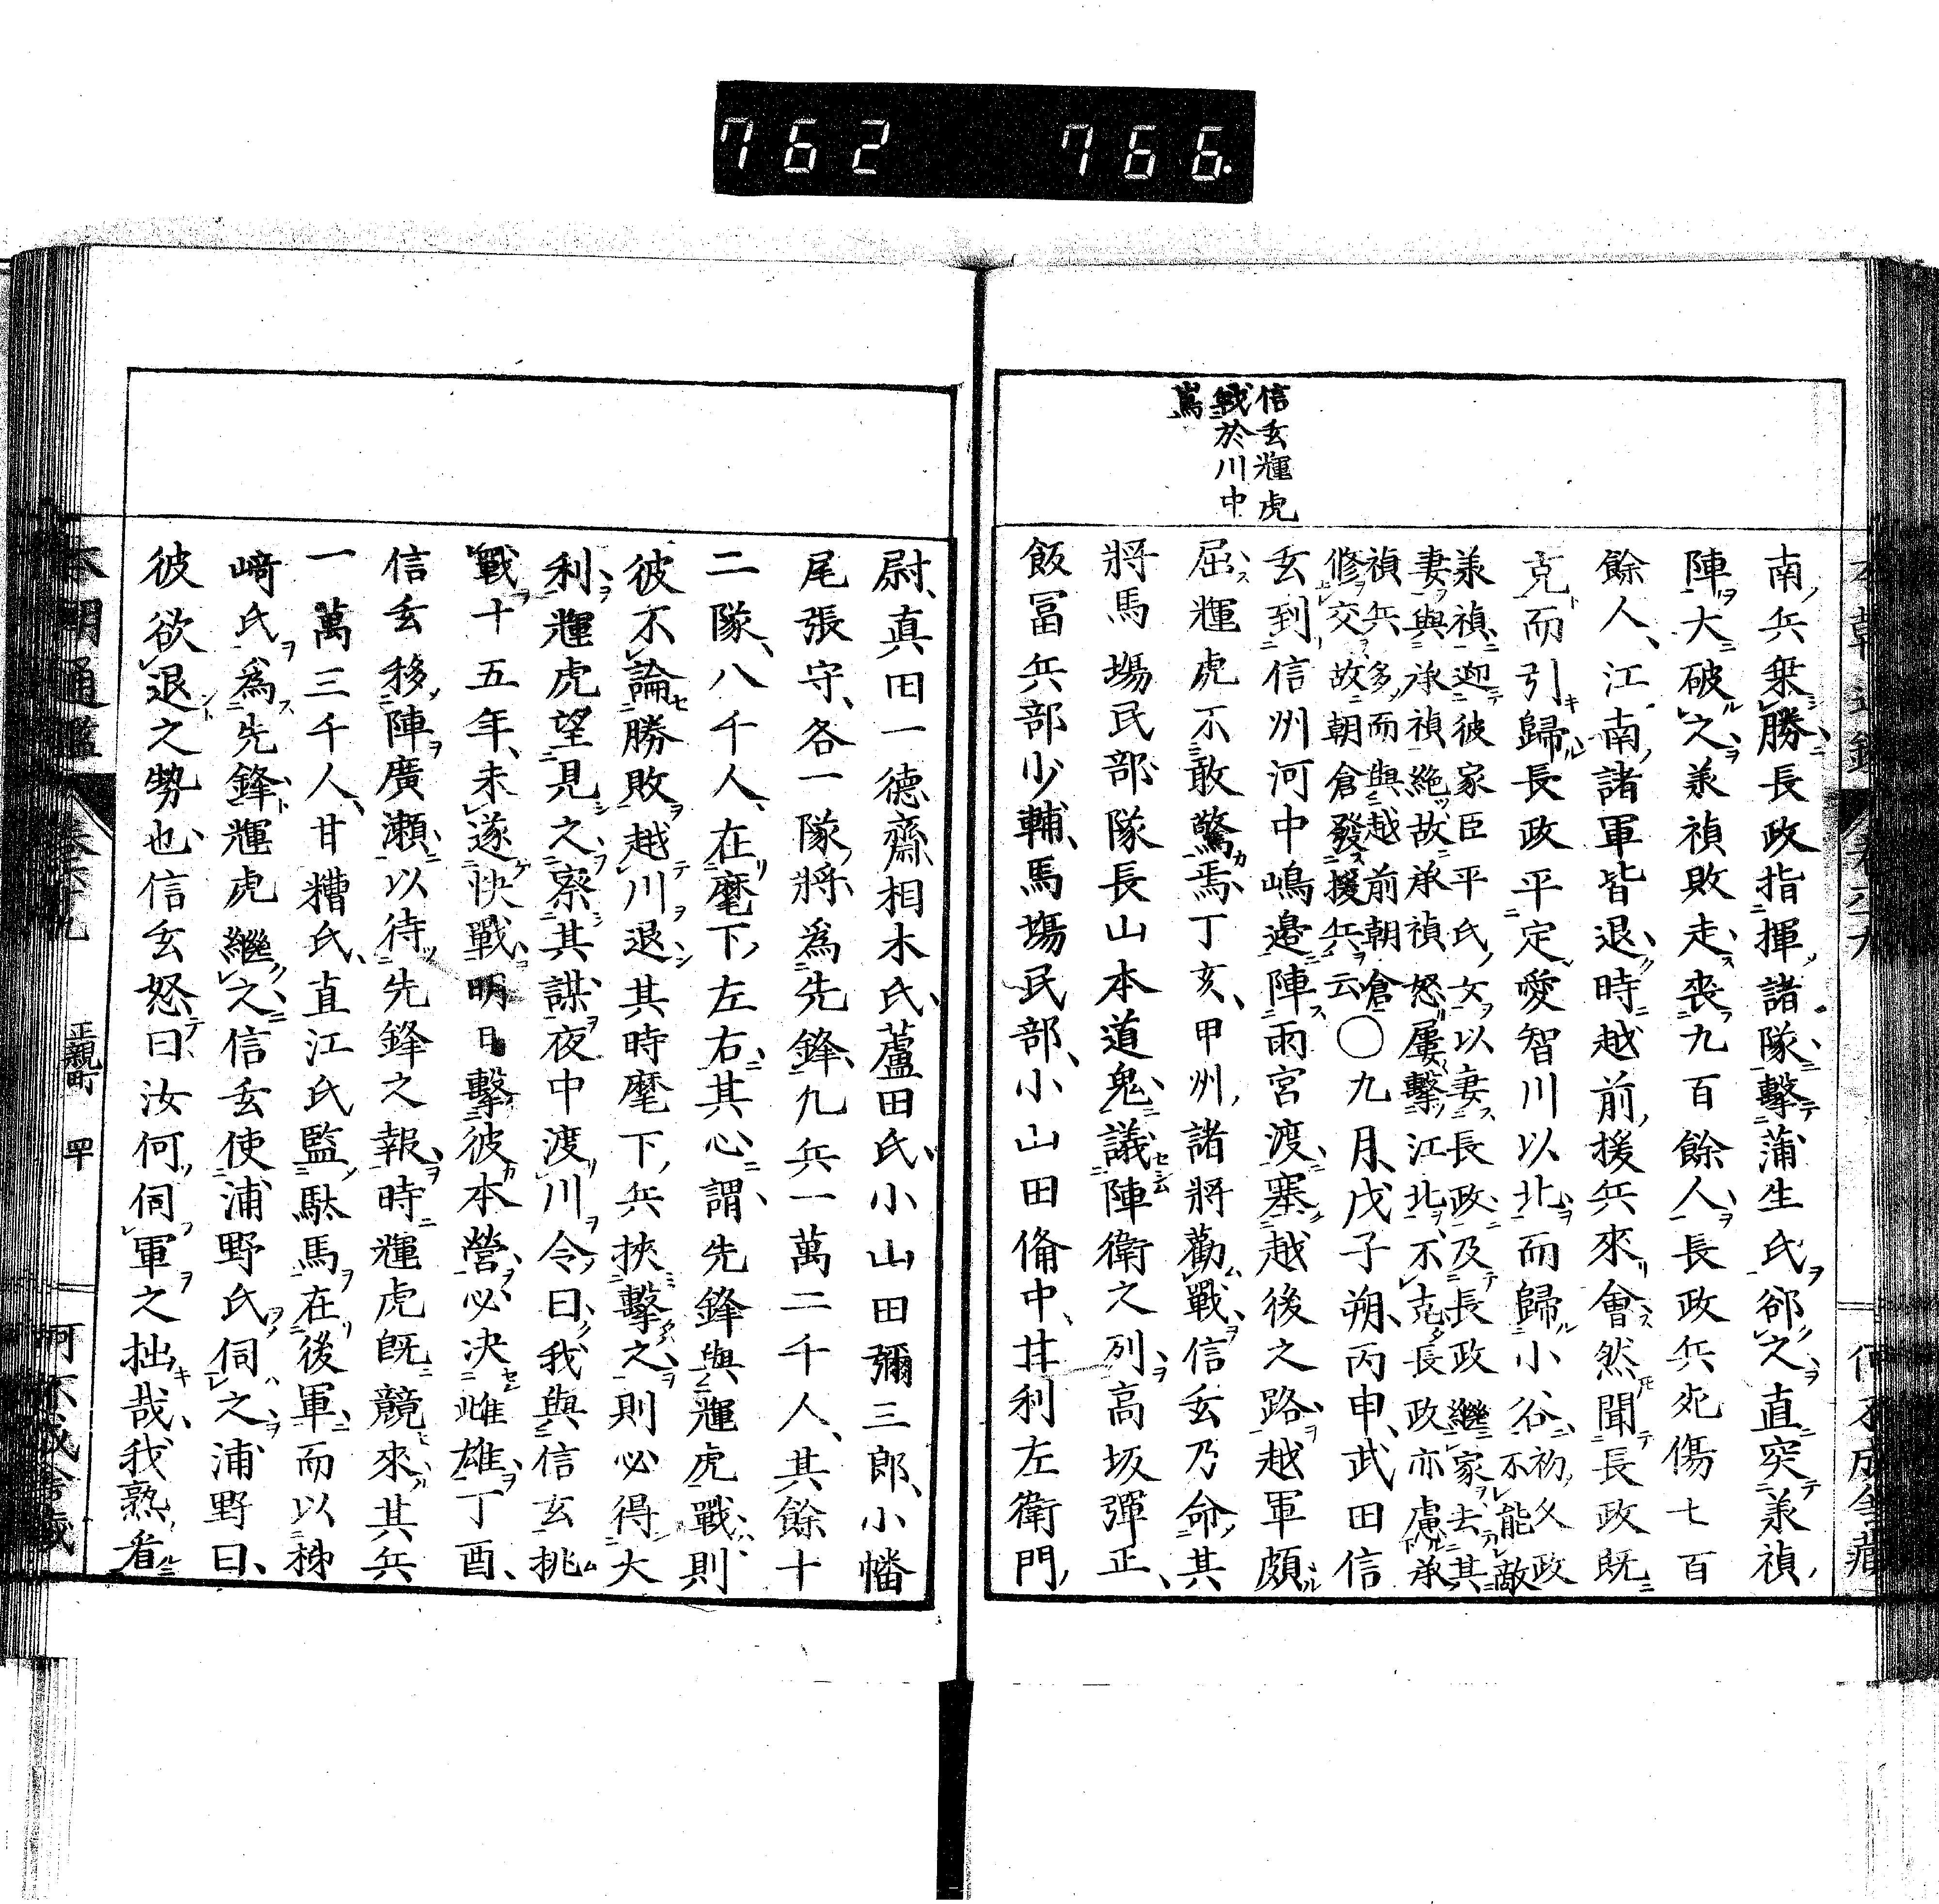 762 766.
信玄輝虎
戰於川中
嶌
南兵乗勝長政指揮諸隊擊蒲生氏郤之直突義禎
陣大破之義禎敗走喪九百餘人長政兵死傷七百
餘人江南諸軍皆退時越前援兵來會然聞長政既
克而引歸長政平定愛智川以北而歸小谷初父政不能敵
義禎迎彼家臣平氏女以妻長政及長政繼家去其
妻與承禎絶故承禎怒屢擊江北不克長政亦慮承
禎兵多而與越前朝倉
修交故朝倉發援兵云〇九月戊子朔丙申武田信
玄到信州河中嶋邉陣雨宮渡塞越後之路越軍頗
屈輝虎不敢驚焉丁亥甲州諸將勸戰信玄乃命其
將馬塲民部隊長山本道鬼議陣衛之列高坂彈正
飯冨兵部少輔馬塲民部小山田偹中甘利左衛門
尉真田一德齋相木氏蘆田氏小山田彌三郎小幡
尾張守各一隊將爲先鋒凢兵一萬二千人其餘十
二隊八千人在麾下左右其心謂先鋒與輝虎戰則
彼不論勝敗越川退其時麾下兵挾擊之則必得大
利輝虎望見之察其謀夜中渡川令曰我與信玄挑
戰十五年未遂快戰明日擊彼本營必決雌雄丁酉
信玄移陣廣瀬以待先鋒之報時輝虎既競來其兵
一萬三千人甘糟氏直江氏監駄馬在後軍而以柿
﨑氏爲先鋒輝虎繼之信玄使浦野氏伺之浦野曰
彼欲退之勢也信玄怒曰汝何伺軍之拙哉我熟看
本朝通鑑
正親町